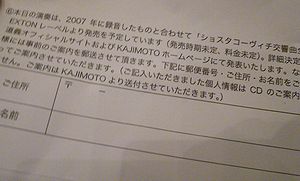 ⑥本日の演奏は、2007 年に録音したものと合わせて「ショスタコーヴィチ交響曲
EXTON レーベルより発売を予定しています (発売時期未定、料金未定)。詳細決定
道義オフィシャルサイトおよび KAJIMOTO ホームページにて発表いたします。な
様には事前のご案内を郵送させて頂きます。下記に郵便番号・ご住所・お名前をご
ってご案内させていただきます。(ご記入いただきました個人情報は CD のご案内
せん。ご案内は KAJIMOTO より送付させていただきます。)
ご住所
〒 －
名前